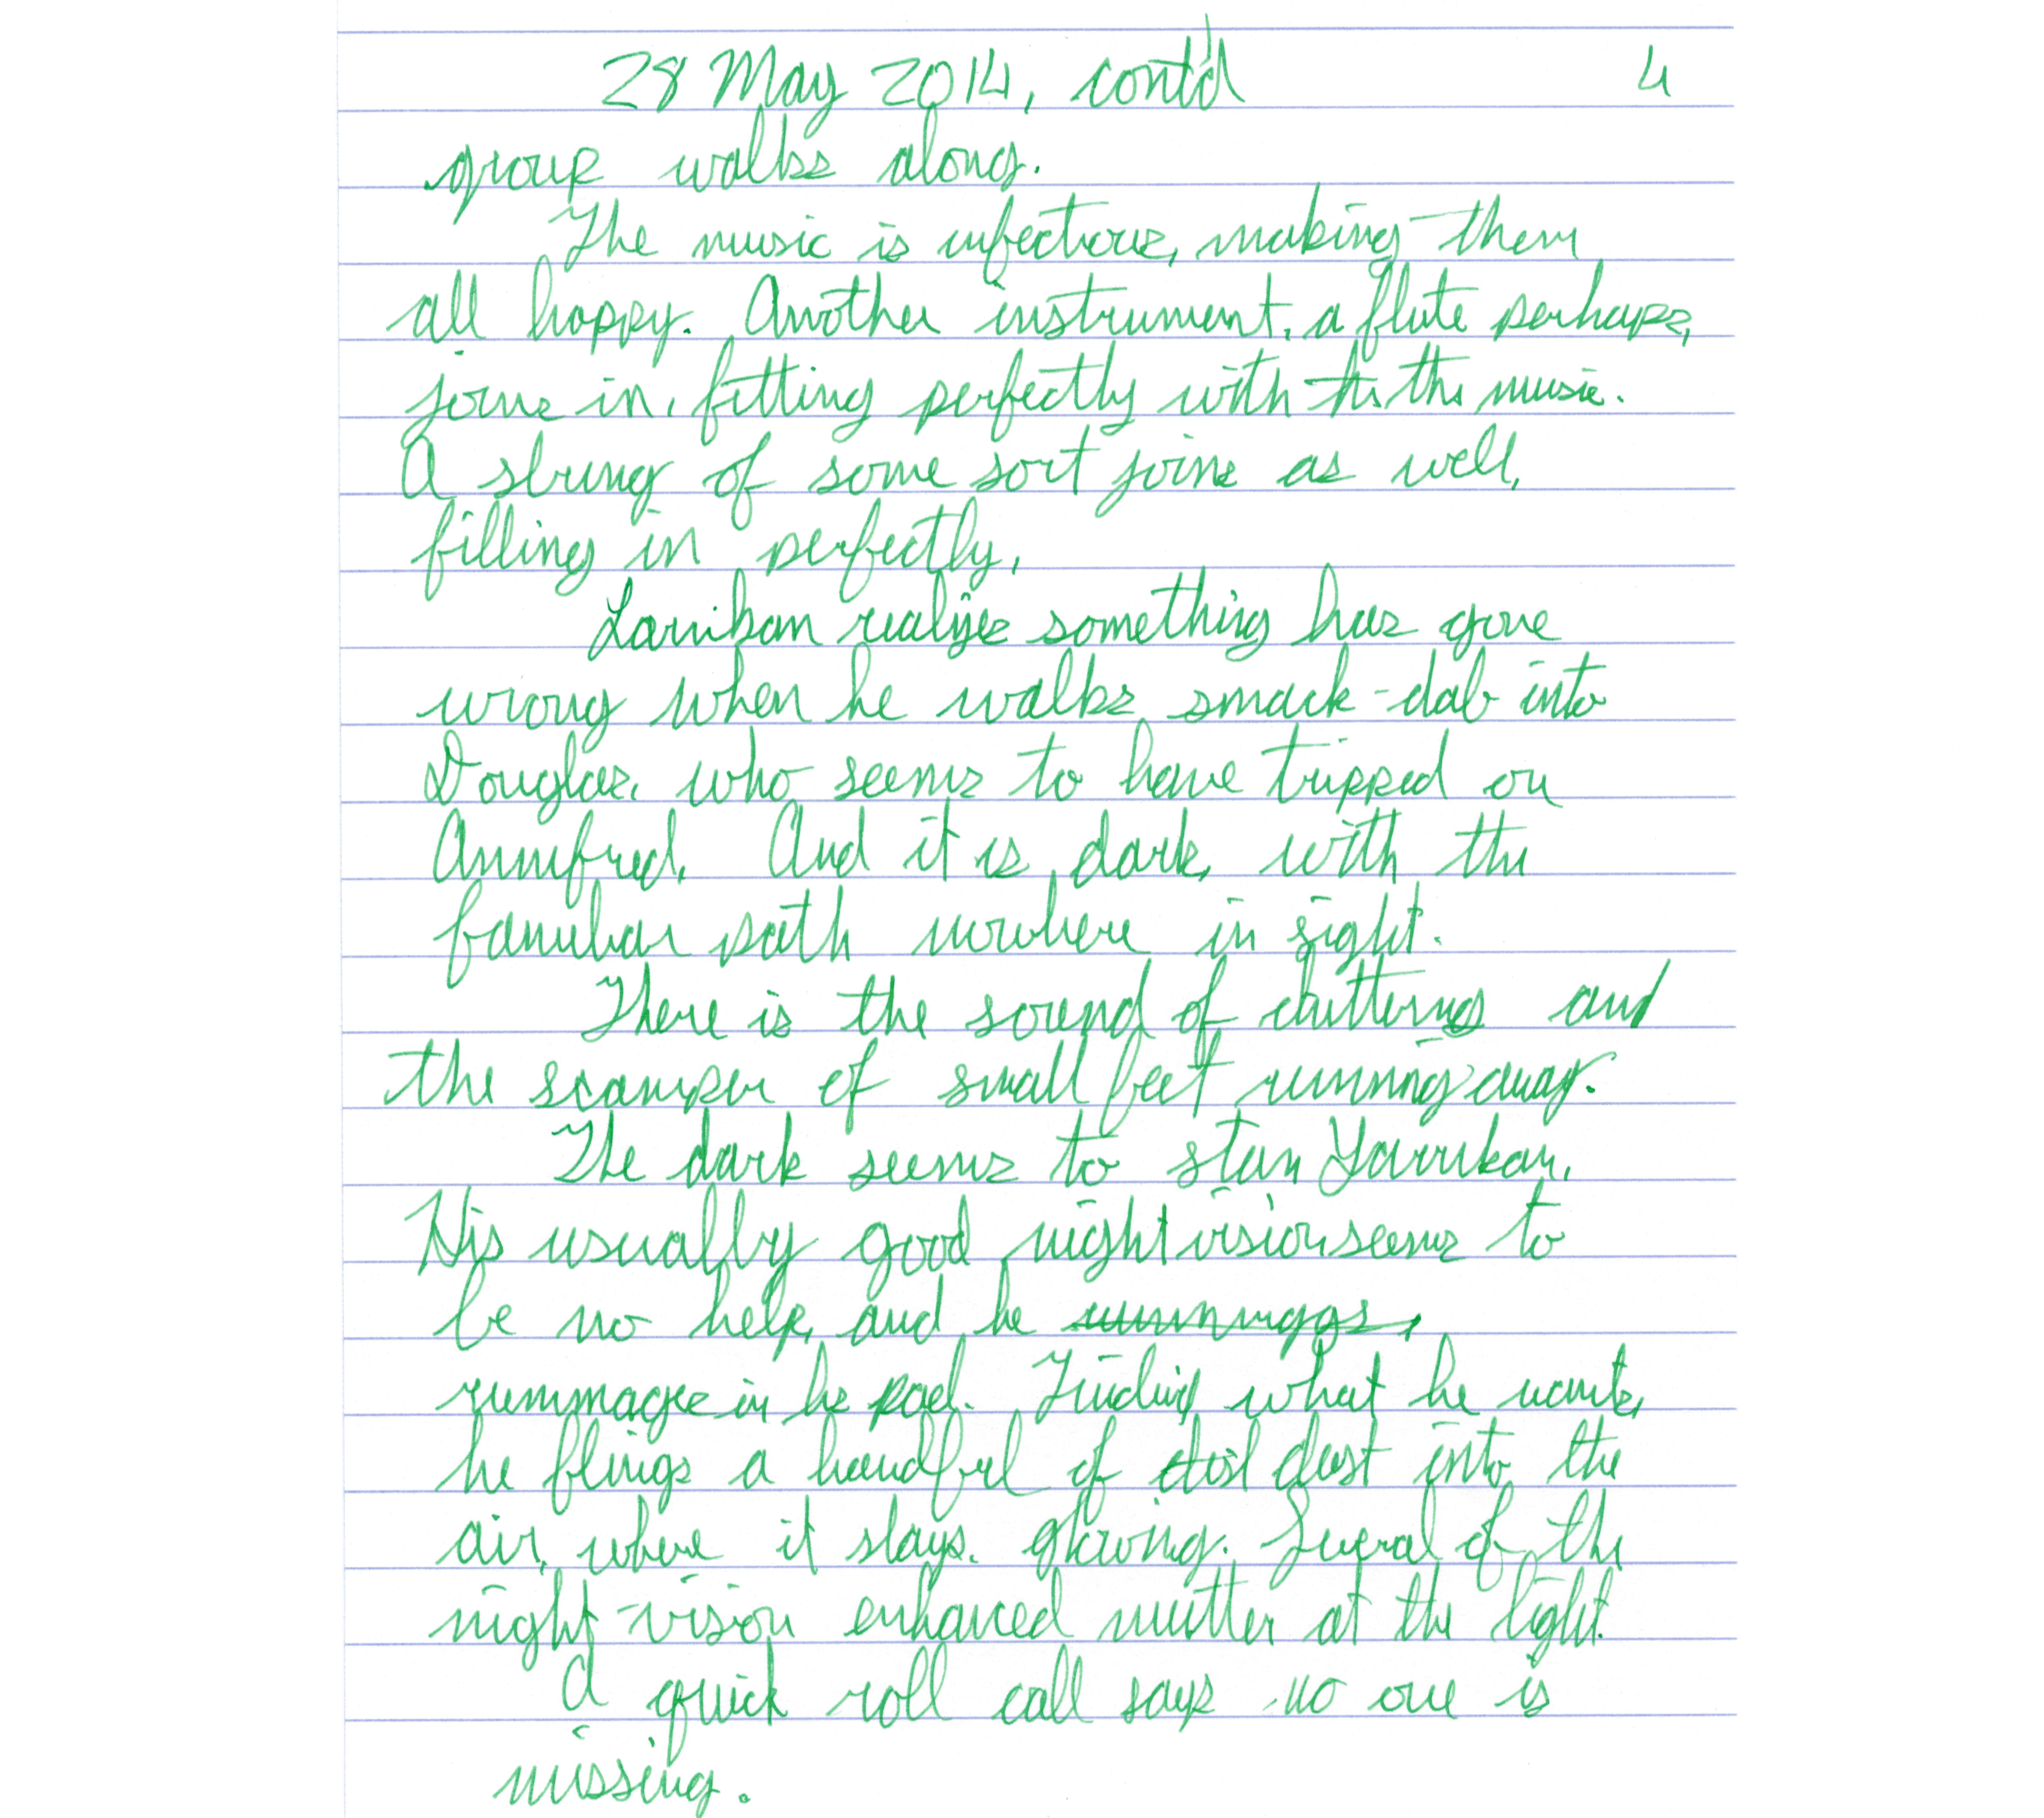 28 May 2014, cont'd 4
group walks along.
The music is infectious, making them
all happy. Another instrument, a flute perhaps,
joins in, fitting perfectly with the music.
A string of some sort joins as well,
filling in perfectly.
realizes something has gone
wrong when he walks smack-dab into
Douglas, who seems to have tripped on
Annifred. And it is dark, with the
familiar path nowhere in sight.
There is the sound of chittering and
the scamper of small feet running away.
The dark seems to
His usually good night vision seems to
be no help, and he
rummages in his Finding what he wants,
he flings a handful of dust into the
air, where it stays, glowing. Several of the
night-vision enhanced mutter at the light.
A quick roll call says no one is
missing.